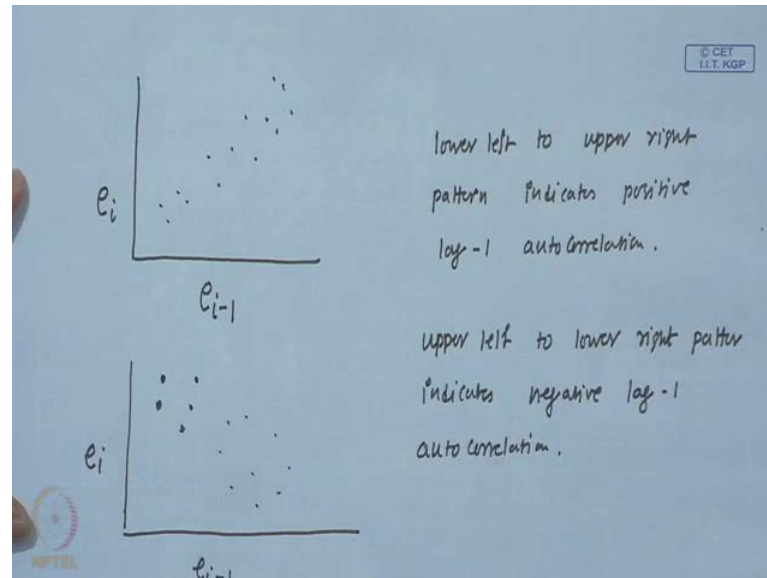 © CET
I.I.T. KGP
lower left to upper right
pattern indicates positive
lag-1 autocorrelation.
e_i
e_{i-1}
upper left to lower right patter
indicates negative lag-1
autocorrelation.
e_i
e_{i-1}
NPTEL